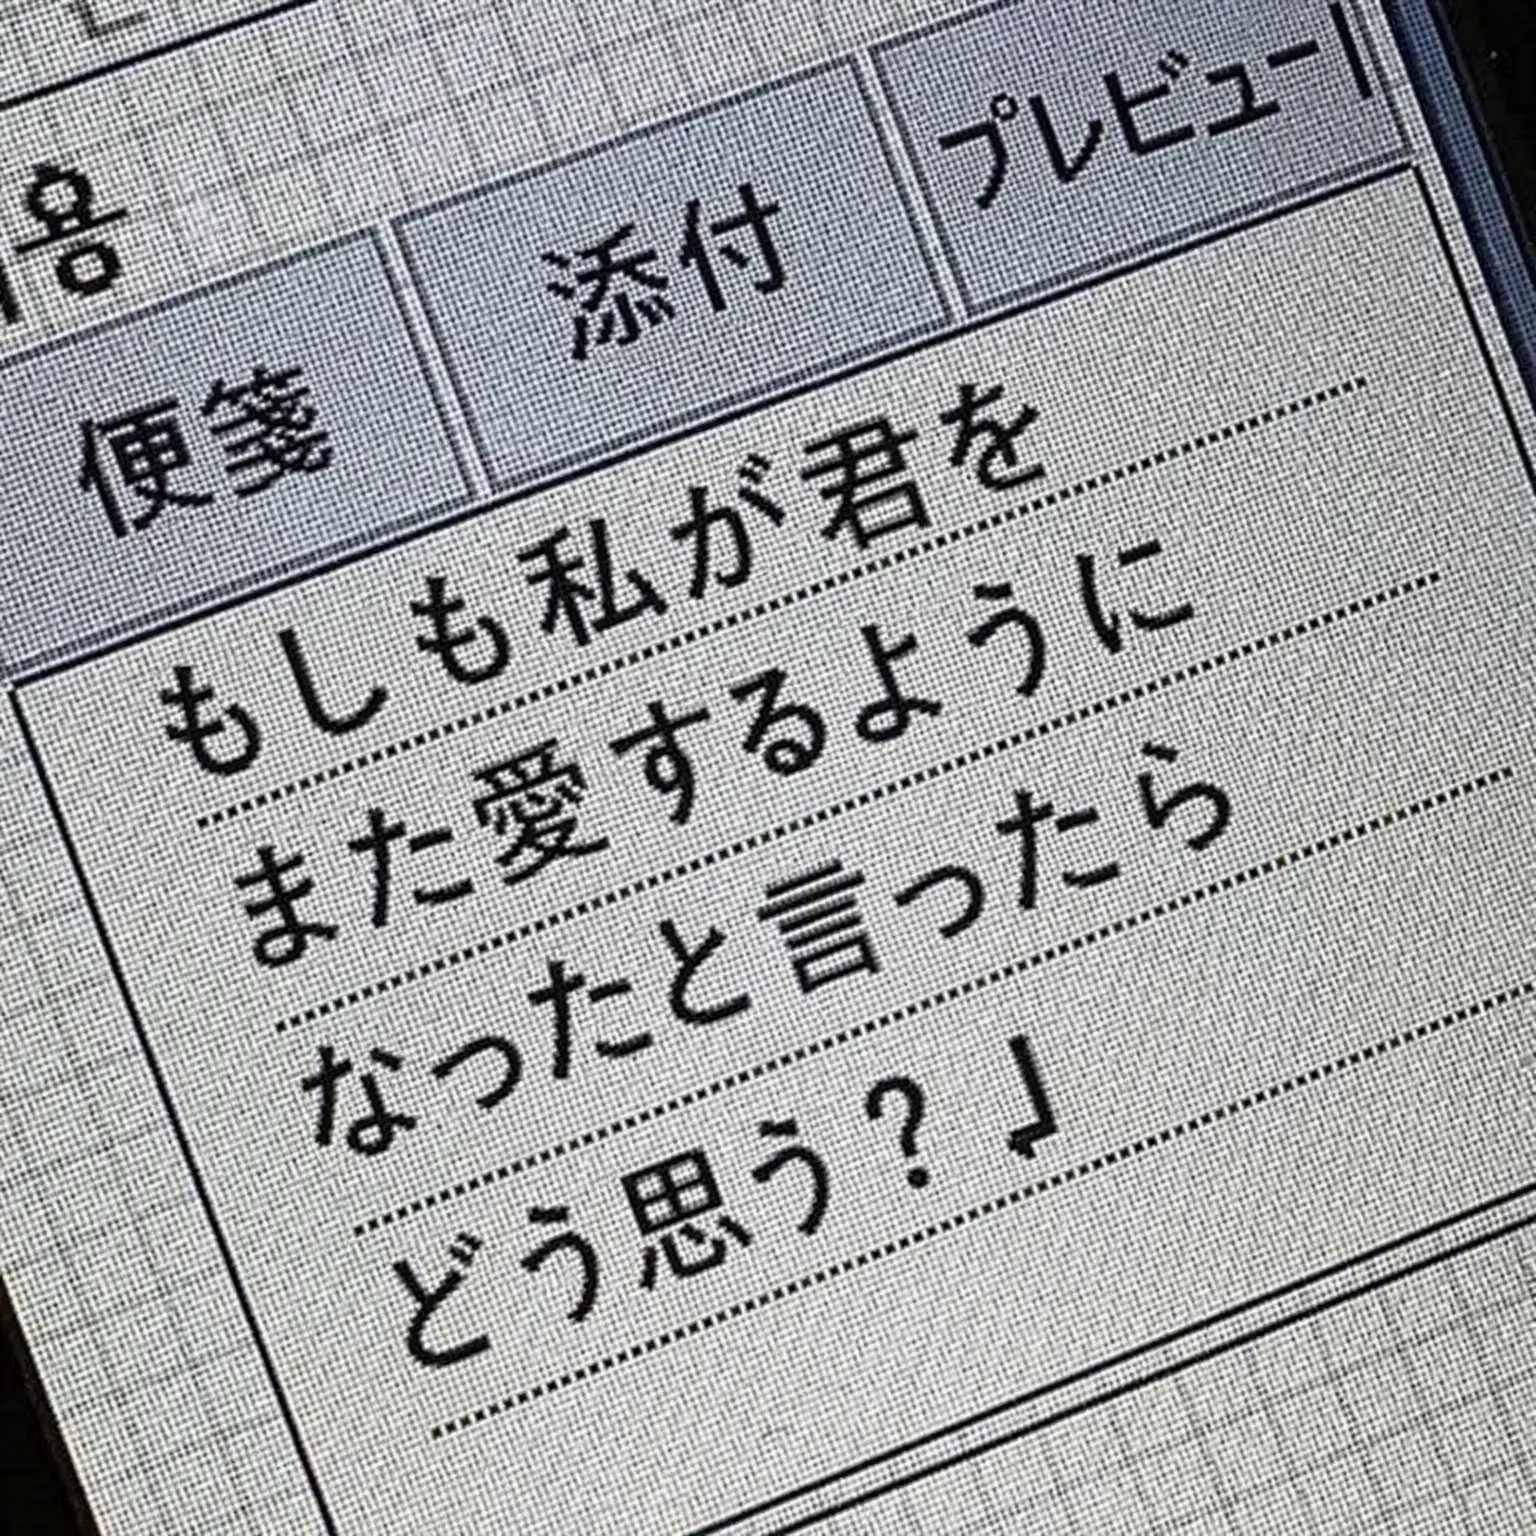 용
便箋 添付 プレビュー
もしも私が君を
また愛するように
なったと言ったら
どう思う?↲